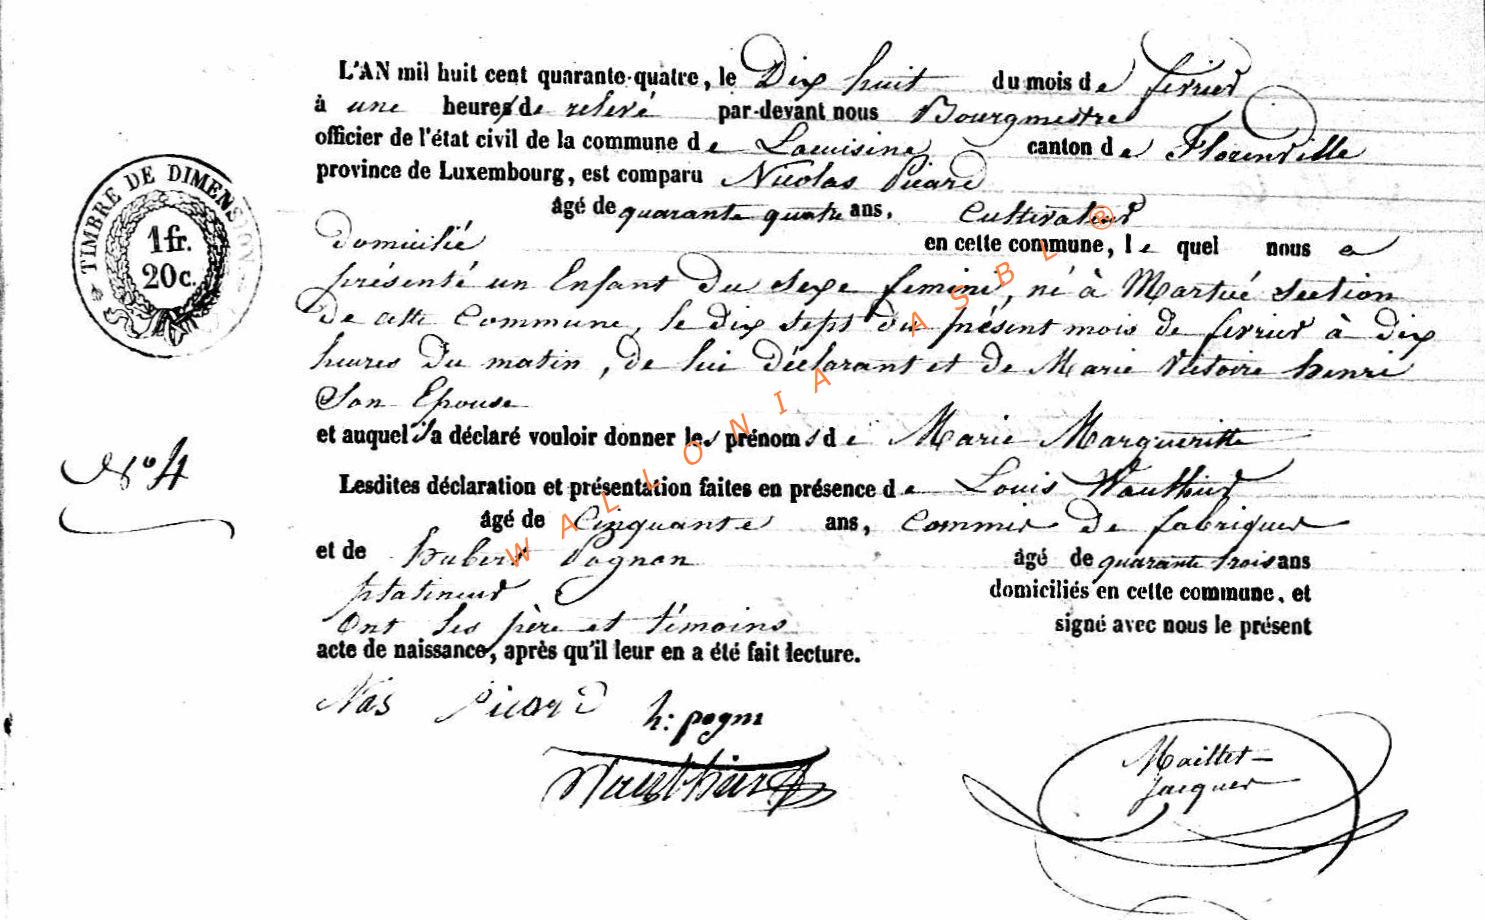 L'AN mil huit cent quarante-quatre, le Dix huit du mois de fevrier
à une heures de relevé par-devant nous Bourgmestre
officier de l'état civil de la commune de Lacuisine canton de Florenville
province de Luxembourg, est comparu Nicolas Picard
âgé de quarante quatre ans, Cultivateur
domicilié en cette commune, le quel nous a
présenté un Enfant du sexe feminé, né à Martué Section
de cette Commune, le dix sept du présent mois de fevrier à dix
heures du matin, de lui déclarant et de Marie Victoire henri
Son Epouse
et auquel il a déclaré vouloir donner les prénoms de Marie Margueritte
Lesdites déclaration et présentation faites en présence de Louis Wauthier
âgé de Cinquante ans, Commis de fabriques
et de hubert Pognon âgé de quarante trois ans
platineur domiciliés en cette commune, et
Ont les père et témoins signé avec nous le présent
acte de naissance, après qu'il leur en a été fait lecture.
N°4
TIMBRE DE DIMENSION
1 fr.
20 c.
Nas Picard h: pogn
Wauthier
Maillet-
Jacques
WALLONIA ASBL ®